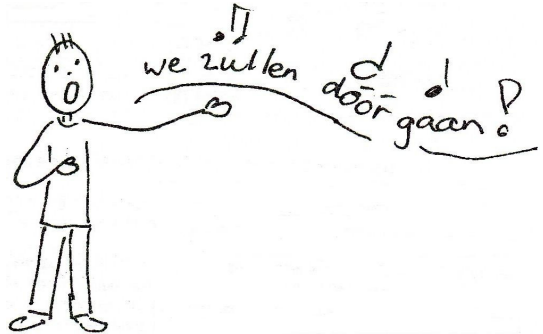 we zullen dóór gaan!